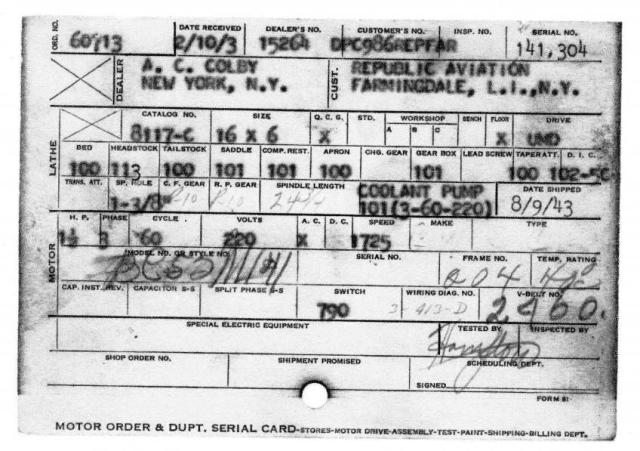 ORD. NO. DATE RECEIVED DEALER'S NO. CUSTOMER'S NO. INSP. NO. SERIAL NO.
60713 2/10/3 15264 DPC986REPFAR 141,304
DEALER A. C. COLBY CUST. REPUBLIC AVIATION
NEW YORK, N.Y. FARMINGDALE, L.I.,N.Y.
CATALOG NO. SIZE Q.C.G. STD. WORKSHOP BENCH FLOOR DRIVE
A B C
8117-C 16 x 6 X X UMD
LATHE
BED HEADSTOCK TAILSTOCK SADDLE COMP.REST. APRON CHG. GEAR GEAR BOX LEAD SCREW TAPER ATT. D. I. C.
100 113 100 101 101 100 101 100 102-5C
TRANS. ATT. SP. HOLE C. F. GEAR R. P. GEAR SPINDLE LENGTH COOLANT PUMP DATE SHIPPED
1-3/8" 101(3-60-220) 8/9/43
MOTOR
H. P. PHASE CYCLE VOLTS A. C. D. C. SPEED MAKE TYPE
1½ 3 60 220 X 1725
MODEL NO. OR STYLE NO. SERIAL NO. FRAME NO. TEMP. RATING
204
CAP. INST. REV. CAPACITOR S-S SPLIT PHASE S-S SWITCH WIRING DIAG. NO. V-BELT NO.
790 3-413-D 2460.
SPECIAL ELECTRIC EQUIPMENT TESTED BY INSPECTED BY
Hamilton
SHOP ORDER NO. SHIPMENT PROMISED SCHEDULING DEPT.
SIGNED
FORM 81-
MOTOR ORDER & DUPT. SERIAL CARD-STORES-MOTOR DRIVE-ASSEMBLY-TEST-PAINT-SHIPPING-BILLING DEPT.